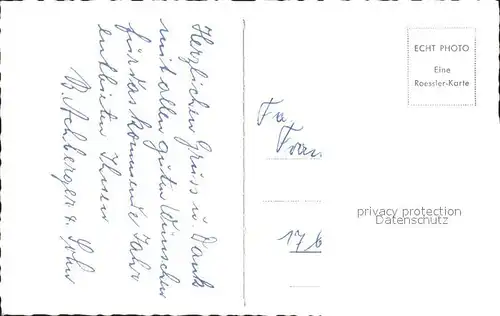 Herzlichen Gruss u. Dank
mit allen guten Wünschen
für das kommende Jahr
entbieten Ihnen
B. Achberger u. Sohn
ECHT PHOTO
Eine
Roessler-Karte
Fa.
Fran
privacy protection
Datenschutz
176